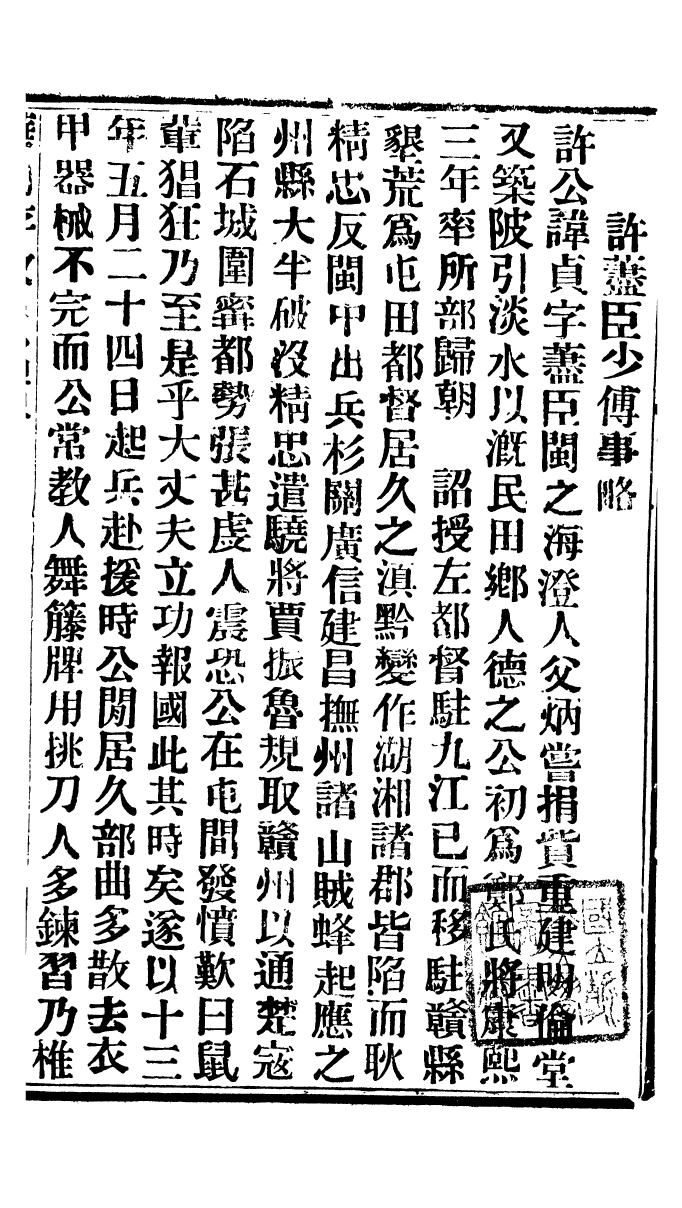 許藎臣少傅事略
許公諱貞字藎臣閩之海澄人父炳嘗捐貲重建明倫堂
又築陂引淡水以漑民田鄉人德之公初爲鄭氏將康熙
三年率所部歸朝　詔授左都督駐九江已而移駐贛縣
墾荒爲屯田都督居久之滇黔變作湖湘諸郡皆陷而耿
精忠反閩中出兵杉關廣信建昌撫州諸山賊蜂起應之
州縣大半破沒精忠遣驍將賈振魯規取贛州以通楚寇
陷石城圍寧都勢張甚虔人震恐公在屯間發憤歎曰鼠
輩猖狂乃至是乎大丈夫立功報國此其時矣遂以十三
年五月二十四日起兵赴援時公閒居久部曲多散去衣
甲器械不完而公常教人舞籐牌用挑刀人多鍊習乃椎